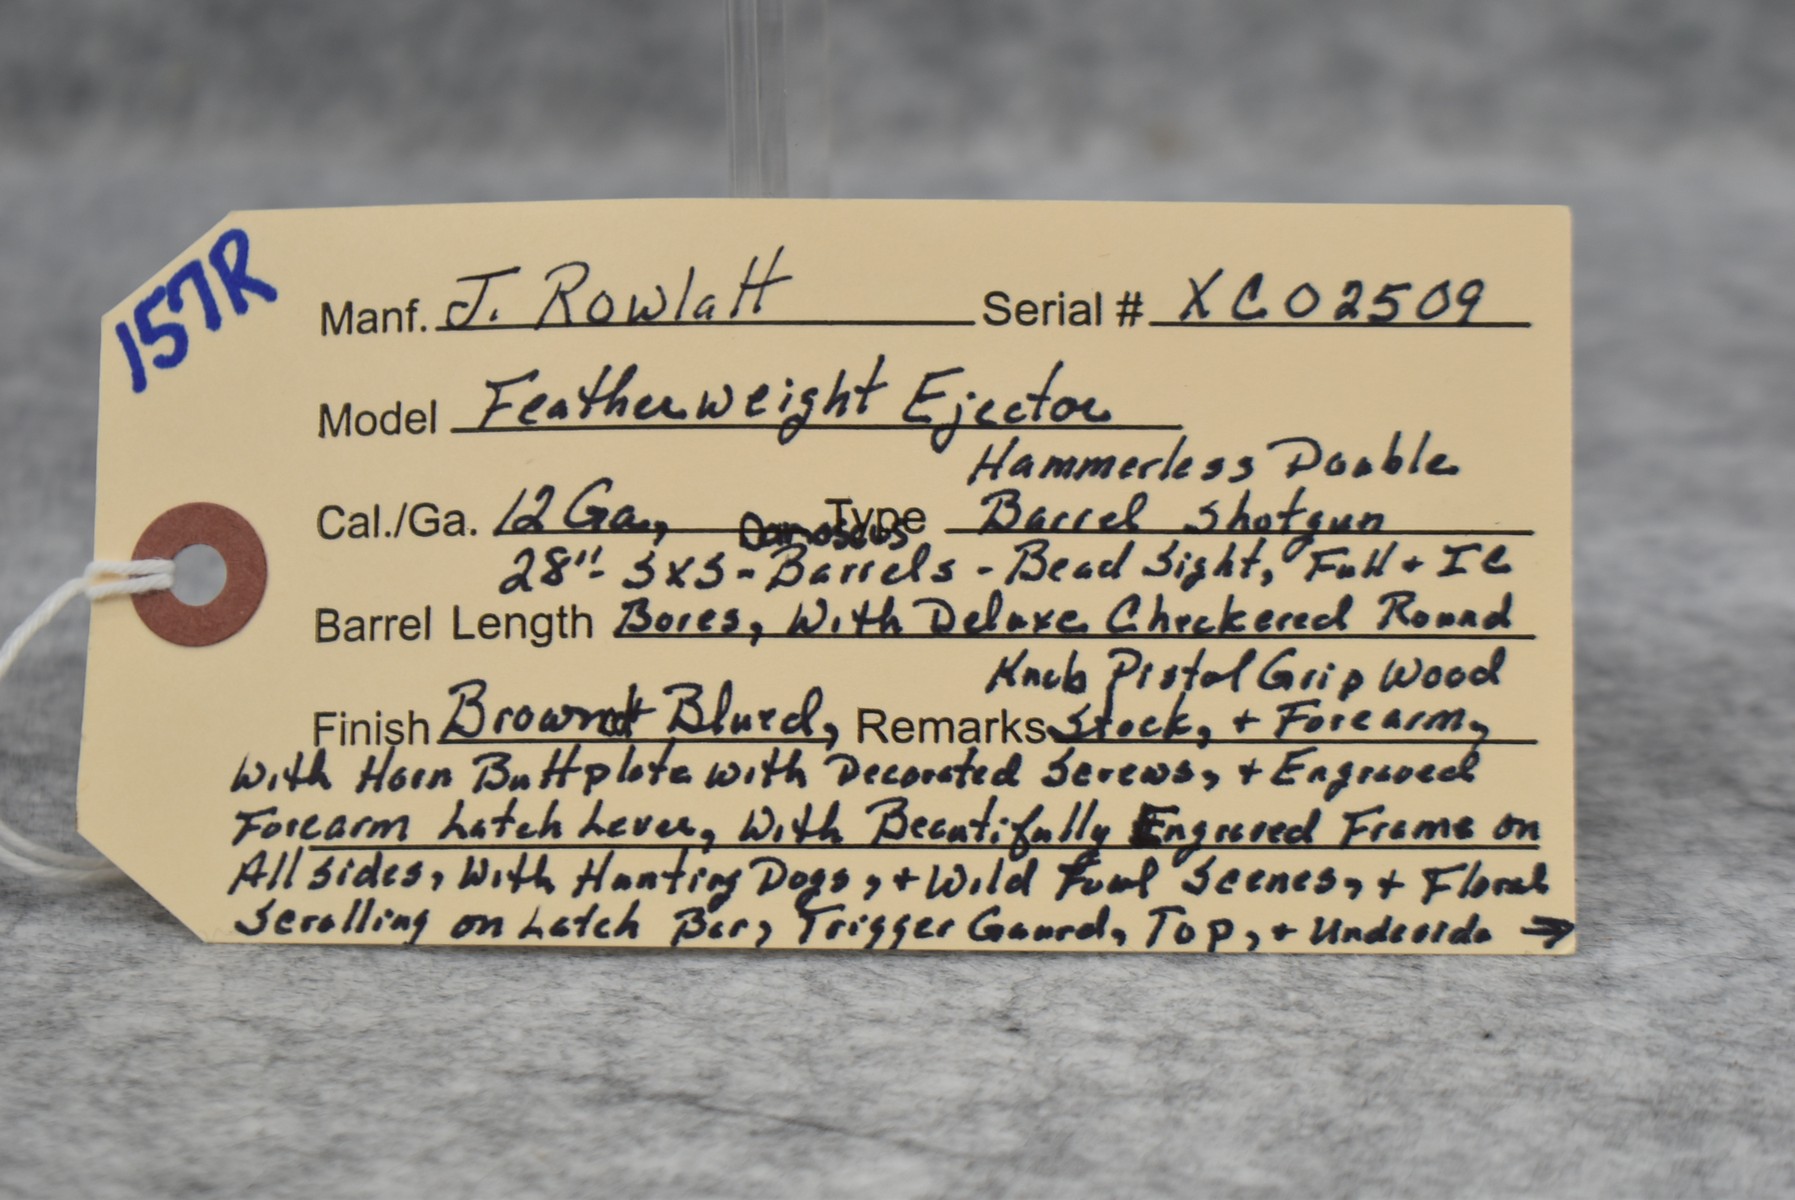 157R
Manf. J. Rowlatt Serial # XC02509
Model Featherweight Ejector
Hammerless Double
Cal./Ga. 12 Ga, Type Barrel Shotgun
Damascus
28"- SXS - Barrels - Bead Sight, Full + IC
Barrel Length Bores, With Deluxe Checkered Round
Knob Pistol Grip Wood
Finish Brown + Blued, Remarks Stock, + Forearm,
With Horn Buttplate with Decorated Screws, + Engraved
Forearm Latch Lever, With Beautifully Engraved Frame on
All sides, With Hunting Dogs, + Wild Fowl Scenes, + Floral
Scrolling on Latch Bar, Trigger Gaurd, Top, + Underside →